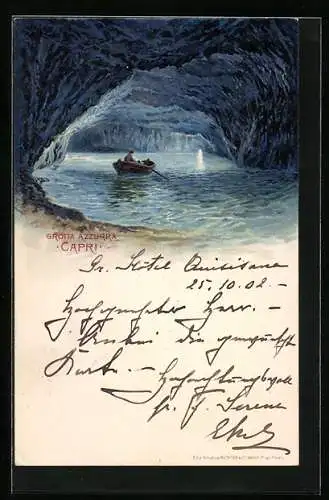 GROTTA AZZURRA
· CAPRI ·
Gr. Hôtel Quisisana
25.10.02. –
Hochgeehrter Herr. –
Anbei die gewünschte
Karte. – Hochachtungsvoll